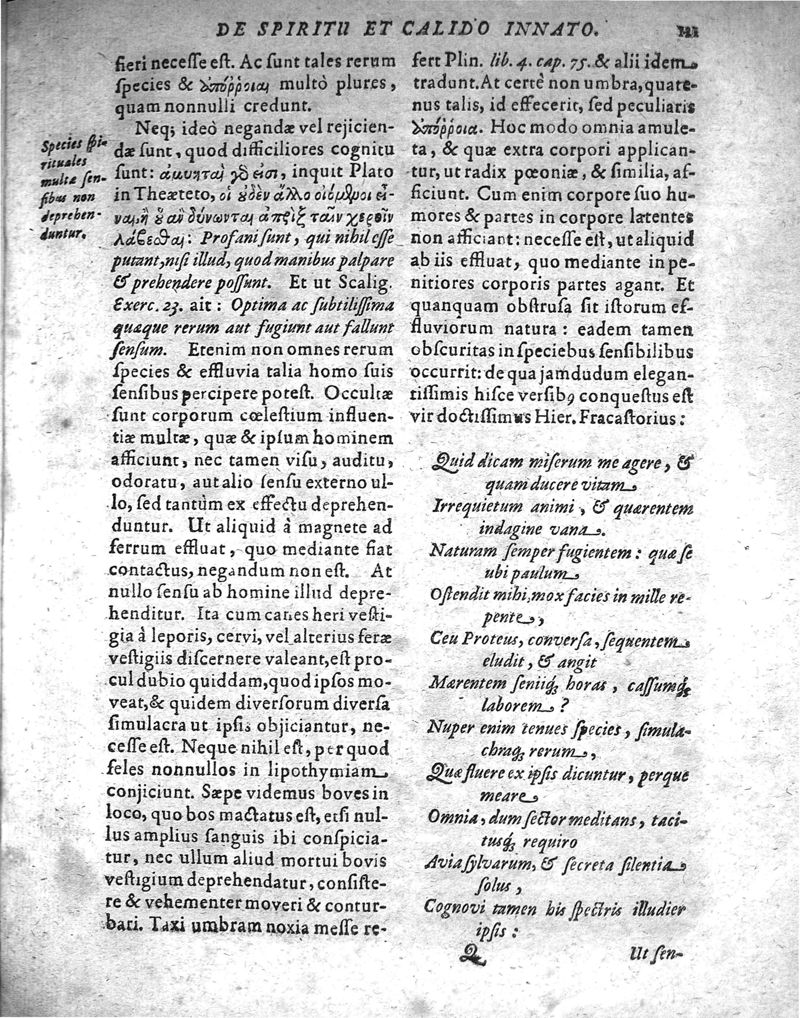 DE SPIRITU ET CALIDO INNATO. 121
fieri necesse est. Ac sunt tales rerum
species & ἀπόῤῥοιαι multò plures,
quam nonnulli credunt.
Neq; ideò negandæ vel rejicien-
dæ sunt, quod difficiliores cognitu
sunt: ἀμυηταὶ γὸ εἰσι, inquit Plato
in Theæteto, οἱ ȣ̓δὲν ἄλλο οἰόμϑμοι εἶ-
ναι, ἢ ȣ̔͂ ἂν δύνωνται ἀπρὶξ ταῖν χεροῖν
λαβέϑαι: Profani sunt, qui nihil esse
putant, nisi illud, quod manibus palpare
& prehendere possunt. Et ut Scalig.
Exerc. 23. ait: Optima ac subtilissima
quæque rerum aut fugiunt aut fallunt
sensum. Etenim non omnes rerum
species & effluvia talia homo suis
sensibus percipere potest. Occultæ
sunt corporum cœlestium influen-
tiæ multæ, quæ & ipsum hominem
afficiunt, nec tamen visu, auditu,
odoratu, aut alio sensu externo ul-
lo, sed tantùm ex effectu deprehen-
duntur. Ut aliquid à magnete ad
ferrum effluat, quo mediante fiat
contactus, negandum non est. At
nullo sensu ab homine illud depre-
henditur. Ita cum canes heri vesti-
gia à leporis, cervi, vel alterius feræ
vestigiis discernere valeant, est pro-
cul dubio quiddam, quod ipsos mo-
veat, & quidem diversorum diversa
simulacra ut ipsis objiciantur, ne-
cesse est. Neque nihil est, per quod
feles nonnullos in lipothymiam
conjiciunt. Sæpe videmus boves in
loco, quo bos mactatus est, etsi nul-
lus amplius sanguis ibi conspicia-
tur, nec ullum aliud mortui bovis
vestigium deprehendatur, consiste-
re & vehementer moveri & contur-
bari. Taxi umbram noxia messe re-
Species spi-
rituales
multæ sen-
sibus non
deprehen-
duntur.
fert Plin. lib. 4. cap. 75. & alii idem
tradunt. At certè non umbra, quate-
nus talis, id effecerit, sed peculiaris
ἀπόῤῥοια. Hoc modo omnia amule-
ta, & quæ extra corpori applican-
tur, ut radix pœoniæ, & similia, af-
ficiunt. Cum enim corpore suo hu-
mores & partes in corpore latentes
non afficiant: necesse est, ut aliquid
ab iis effluat, quo mediante in pe-
nitiores corporis partes agant. Et
quanquam obstrusa sit istorum ef-
fluviorum natura: eadem tamen
obscuritas in speciebus sensibilibus
occurrit: de qua jamdudum elegan-
tissimis hisce versibꝰ conquestus est
vir doctissimus Hier. Fracastorius:
Quid dicam miserum me agere, &
quam ducere vitam
Irrequietum animi, & quærentem
indagine vana.
Naturam semper fugientem: quæ se
ubi paulum
Ostendit mihi, mox facies in mille re-
pente,
Ceu Proteus, conversa, sequentem
eludit, & angit
Mærentem seniiq; horas, cassumq;
laborem?
Nuper enim tenues species, simula-
chraq; rerum,
Quæ fluere ex ipsis dicuntur, perque
meare
Omnia, dum sector meditans, taci-
tusq; requiro
Avia sylvarum, & secreta silentia
solus,
Cognovi tamen his spectris illudier
ipsis:
Q Ut sen-